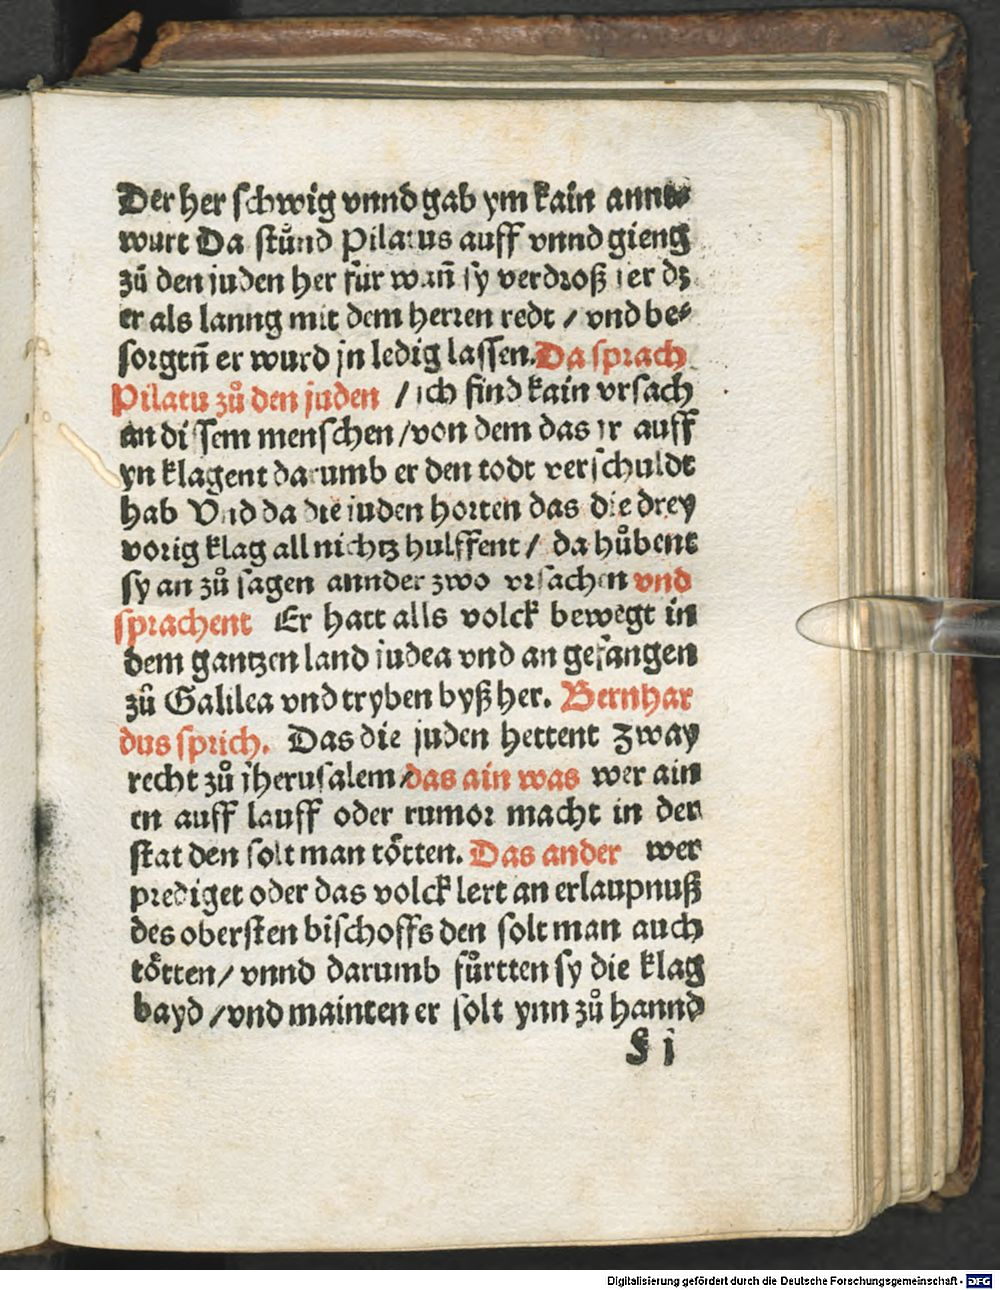 Der her schwig vnnd gab ym kain annt⸗
wurt Da stůnd Pilatus auff vnnd gieng
zů den juden her für wañ sy verdroß ser dz
er als lanng mit dem herren redt / vnd be⸗
sorgtñ er wurd jn ledig lassen. Da sprach
Pilatu zů den juden / ich find kain vrsach
an dissem menschen / von dem das ir auff
yn klagent darumb er den todt verschuldt
hab Vnd da die juden horten das die drey
vorig klag all nichtz hulffent / da hůbent
sy an zů sagen annder zwo vrsachen vnd
sprachent Er hatt alls volck bewegt in
dem gantzen land iudea vnd an gefangen
zů Galilea vnd tryben byß her. Bernhar
dus sprich. Das die juden hettent zway
recht zů iherusalem / das ain was wer ain
en auff lauff oder rumor macht in der
stat den solt man tötten. Das ander wer
prediget oder das volck lert an erlaupnuß
des obersten bischoffs den solt man auch
tötten / vnnd darumb fůrtten sy die klag
bayd / vnd mainten er solt ynn zů hannd
f i
Digitalisierung gefördert durch die Deutsche Forschungsgemeinschaft - DFG